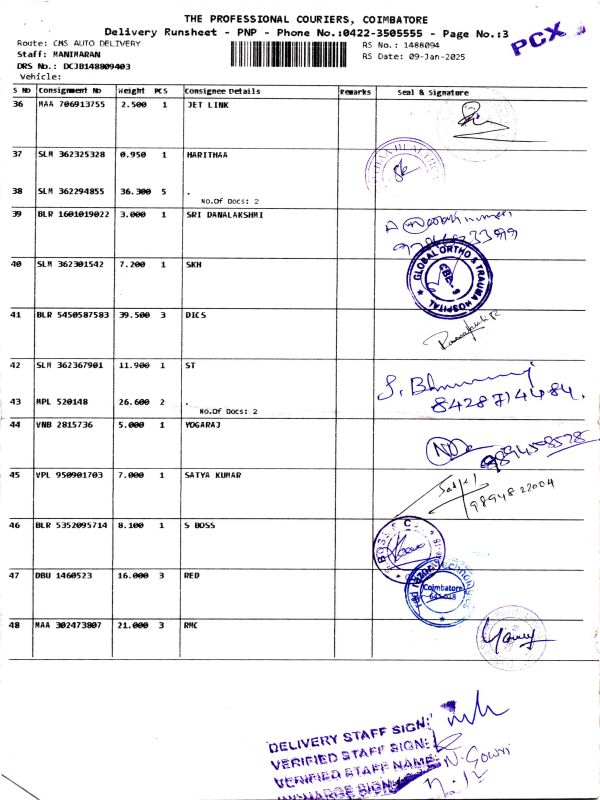 THE PROFESSIONAL COURIERS, COIMBATORE
Delivery Runsheet - PNP - Phone No.:0422-3505555 - Page No.:3
PCX
Route: CMS AUTO DELIVERY
RS No.: 1488094
Staff: MANIMARAN
RS Date: 09-Jan-2025
DRS No.: DCJB148809403
Vehicle:
S No Consignment No Weight PCS Consignee Details Remarks Seal & Signature
36 MAA 706913755 2.500 1 JET LINK
37 SLM 362325328 0.950 1 HARITHAA
38 SLM 362294855 36.300 5 .
No.Of Docs: 2
39 BLR 1601019022 3.000 1 SRI DANALAKSHMI
40 SLM 362301542 7.200 1 SKH
GLOBAL ORTHO & TRAUMA HOSPITAL
CBE
41 BLR 5450587583 39.500 3 DICS
42 SLM 362367901 11.900 1 ST
43 MPL 520148 26.600 2 .
No.Of Docs: 2
8428714484.
44 VNB 2815736 5.000 1 YOGARAJ
9894598528
45 VPL 950901703 7.000 1 SATYA KUMAR
9894822004
46 BLR 5352095714 8.100 1 S BOSS
47 DBU 1460523 16.000 3 RED
Coimbatore
48 MAA 302473807 21.000 3 RMC
DELIVERY STAFF SIGN:
VERIFIED STAFF SIGN:
VERIFIED STAFF NAME: N. Gowri